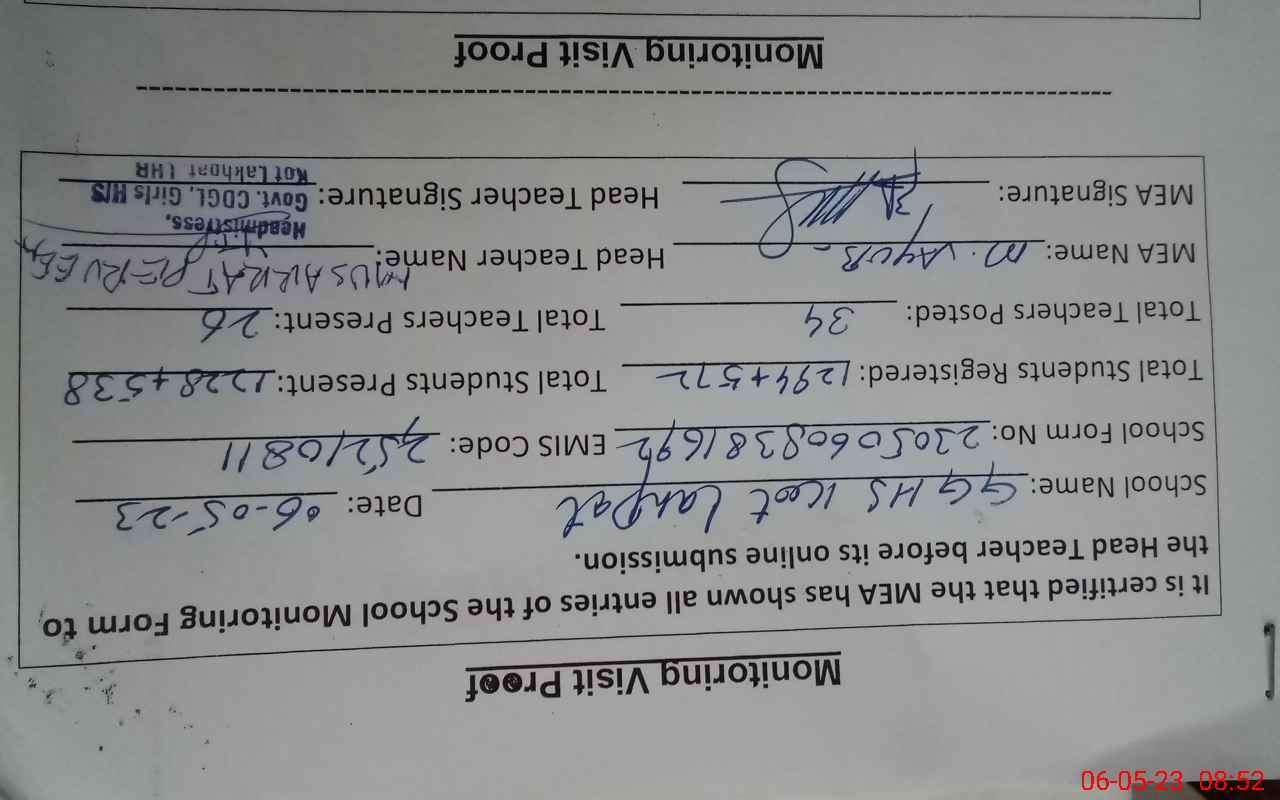 Monitoring Visit Proof
It is certified that the MEA has shown all entries of the School Monitoring Form to
the Head Teacher before its online submission.
School Name: GGHS Kot Lakhpat Date: 06-05-23
School Form No: EMIS Code: 35210811
Total Students Registered: 1294+572 Total Students Present: 1228+538
Total Teachers Posted: 34 Total Teachers Present: 26
MEA Name: M. Ayub Head Teacher Name: MUSARRAT PERVEEN
MEA Signature: Head Teacher Signature:
Headmistress,
Govt. CDGL, Girls H/S
Kot Lakhpat LHR
Monitoring Visit Proof
06-05-23 08:52